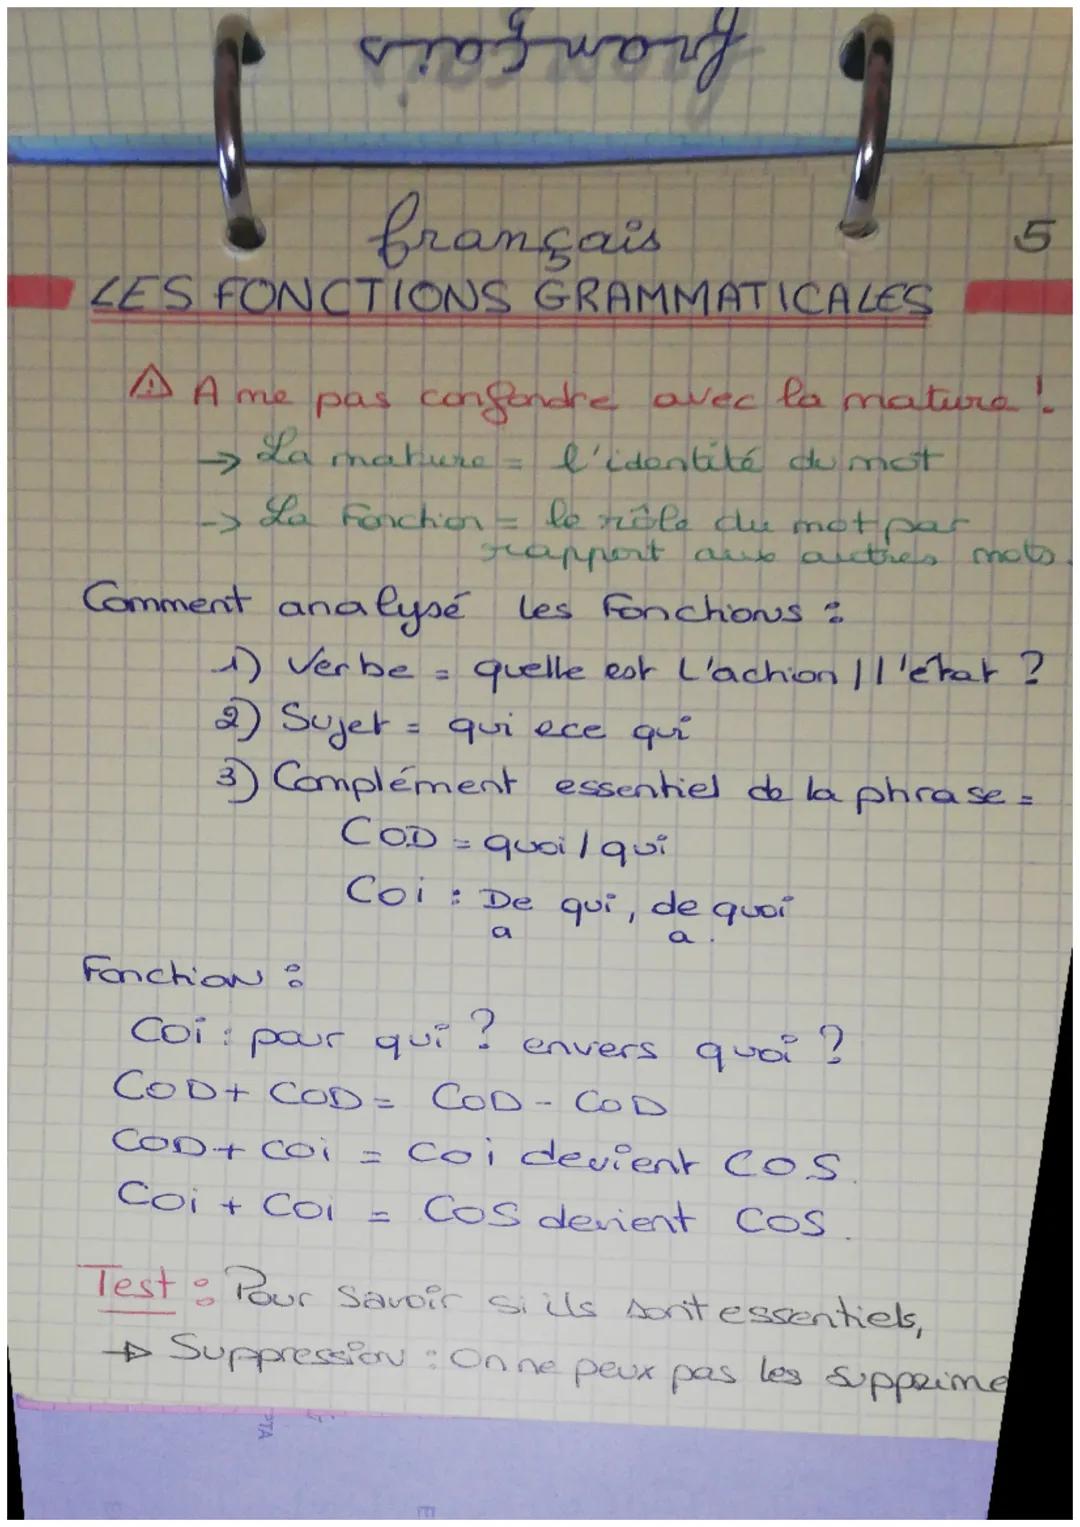 français
français 5
LES FONCTIONS GRAMMATICALES
⚠ A ne pas confondre avec la nature !
→ La nature = l'identité du mot
→ La Fonction = le rôle du mot par
rapport aux autres mots.
Comment analysé les Fonctions :
1) Verbe = quelle est L'action / l'état ?
2) Sujet = qui ece qui
3) Complément essentiel de la phrase =
COD = quoi / qui
Coi : De qui, de quoi
a a.
Fonction :
Coi : pour qui ? envers quoi ?
COD + COD = COD - COD
COD + COi = Coi devient COS.
COi + COi = COS devient COS.
Test : Pour savoir si ils sont essentiels,
→ Suppression : On ne peux pas les supprime
PTA